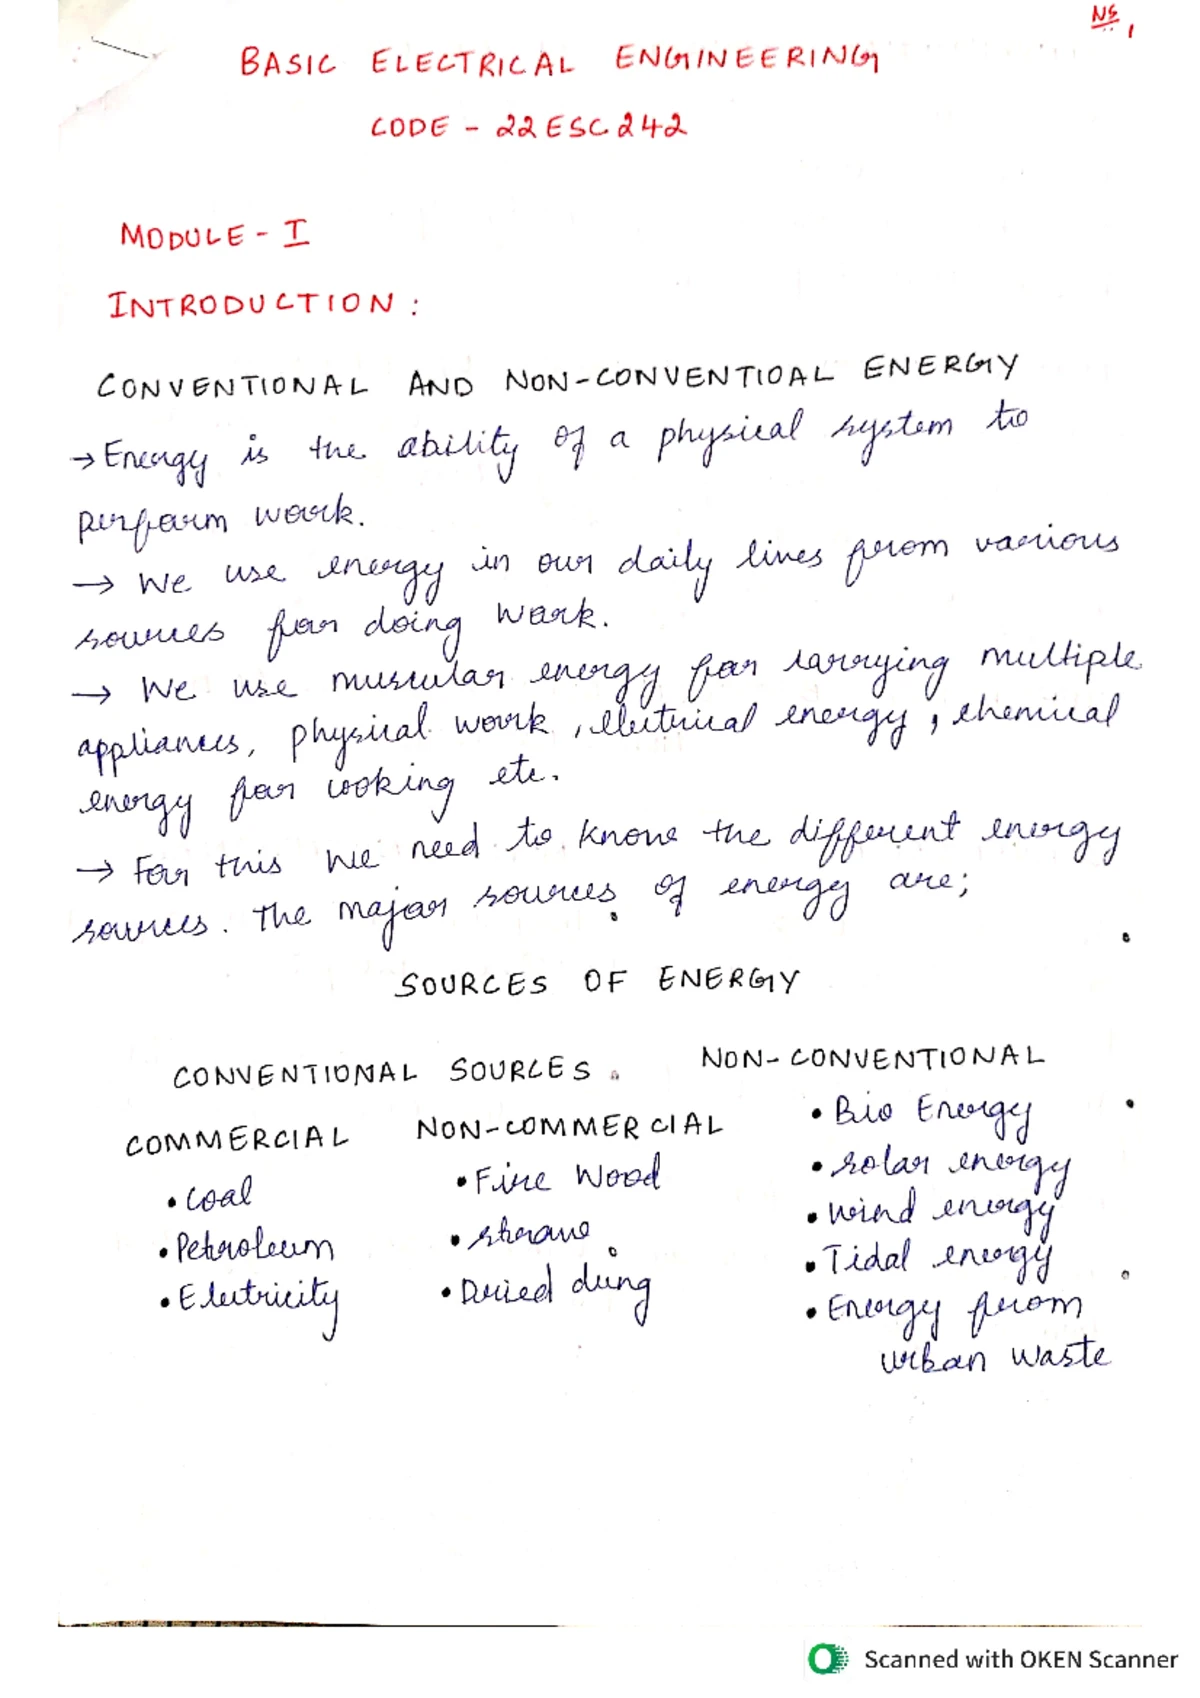 NS 1
BASIC ELECTRICAL ENGINEERING
CODE - 22ESC242
MODULE - I
INTRODUCTION :
CONVENTIONAL AND NON-CONVENTIOAL ENERGY
→ Energy is the ability of a physical system to
perform work.
→ We use energy in our daily lives from various
sources for doing work.
→ We use muscular energy for carrying multiple
appliances, physical work, electrical energy, chemical
energy for cooking etc.
→ For this we need to know the different energy
sources. The major sources of energy are;
SOURCES OF ENERGY
CONVENTIONAL SOURCES.
COMMERCIAL
• Coal
• Petroleum
• Electricity
NON-COMMERCIAL
• Fire Wood
• Straw
• Dried dung
NON-CONVENTIONAL
• Bio Energy
• Solar energy
• Wind energy
• Tidal energy
• Energy from
urban waste
Scanned with OKEN Scanner